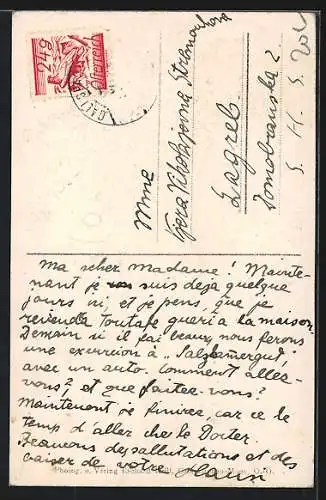 24g
Österreich
Mme
Vjera Nikolajevna
Zagreb
Domobranska 2
S. H. S.
Ma scher Madame! Mainte-
nant je suis deja quelque
jours ici, et je pens, que je
reviendu toutafe queri à la maison.
Demain si il fai beaux, nous ferons
une excursion à „Salzkamergut,
avec un auto. Comment allez-
vous? et que faitez-vous?
Maintenont je finirez, car ce le
temp d'aller che le Docter.
Beaucons des sallutations et des
baiser de votre